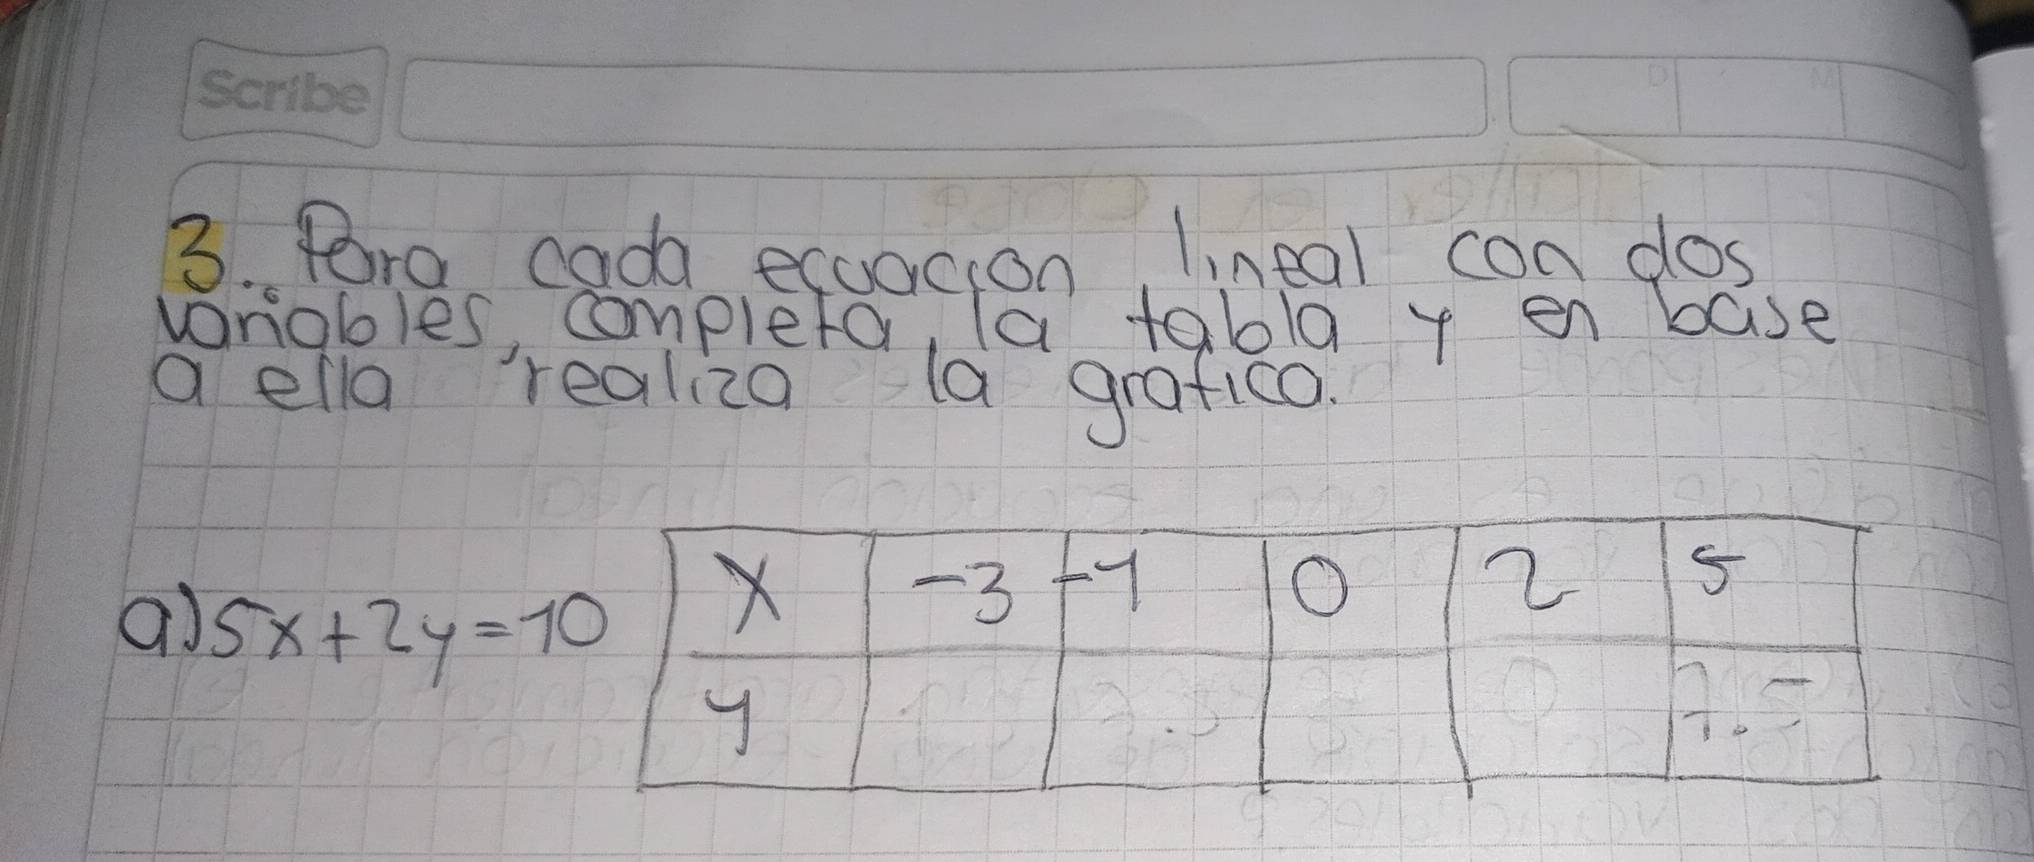 Scribe
D M
3. Para cada ecuacion lineal con dos
variables, completa la tabla y en base
a ella realiza la grafica.
a) 5x+2y=10
x -3 -1 0 2 5
y 7.5